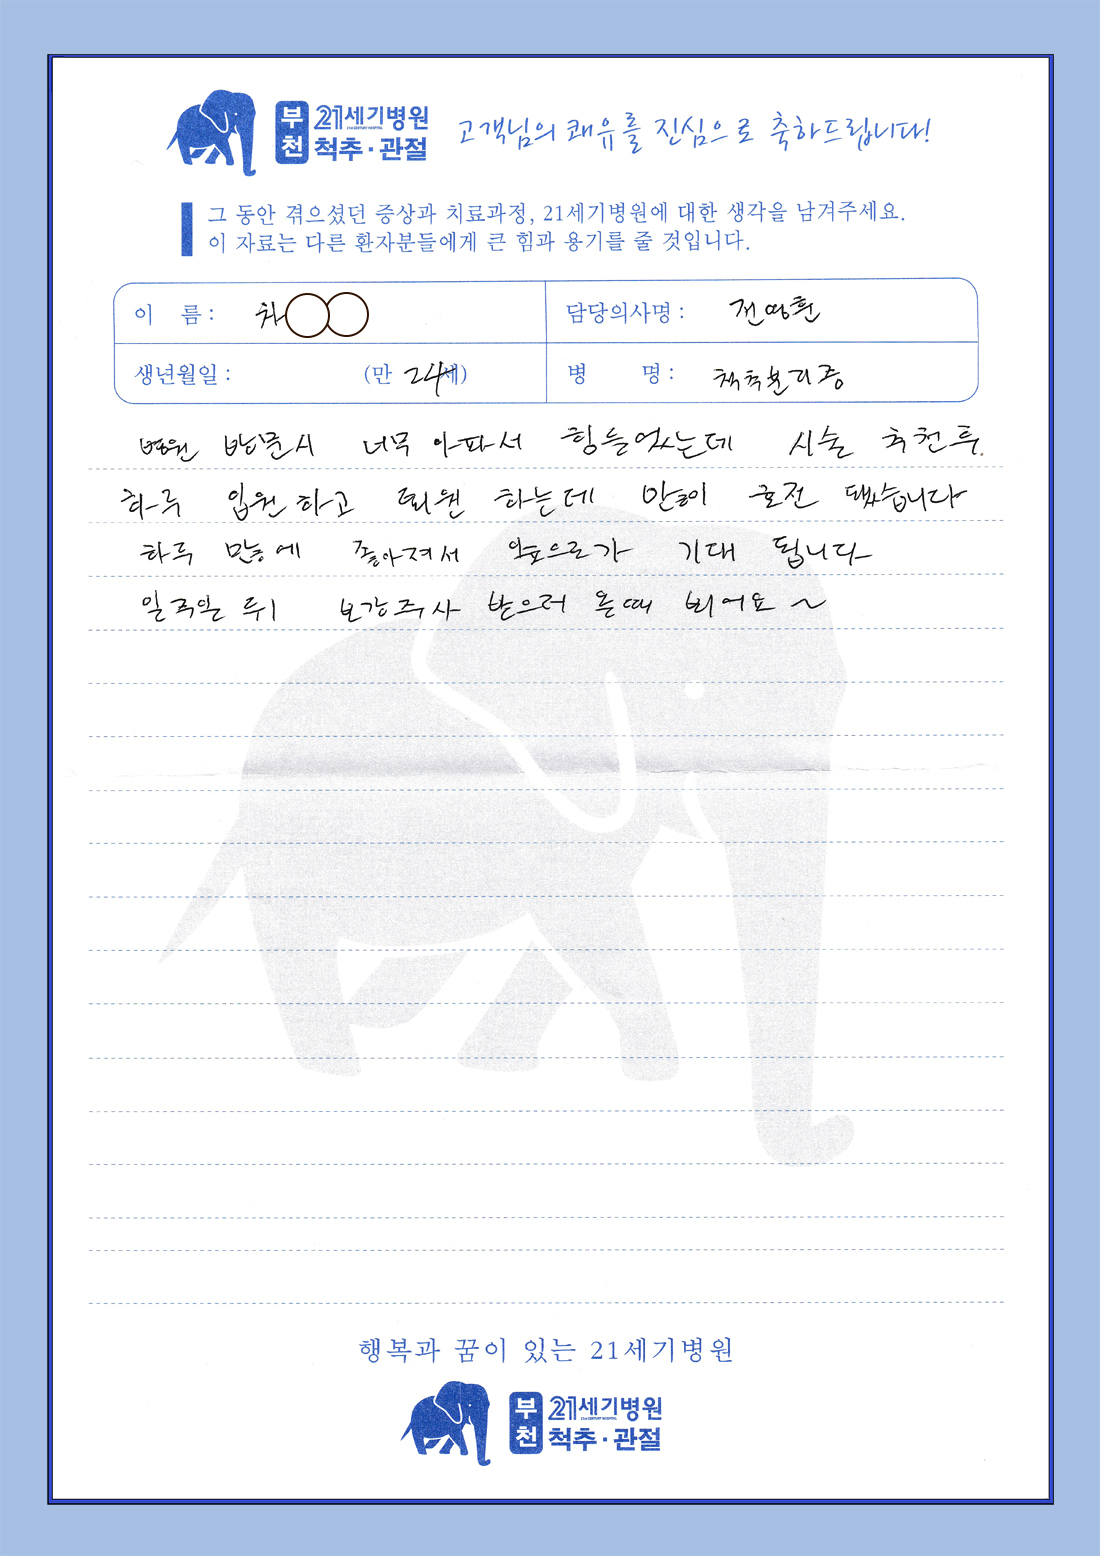 부천 21세기병원 척추·관절
21st CENTURY HOSPITAL
고객님의 쾌유를 진심으로 축하드립니다!
그 동안 겪으셨던 증상과 치료과정, 21세기병원에 대한 생각을 남겨주세요.
이 자료는 다른 환자분들에게 큰 힘과 용기를 줄 것입니다.
이 름 : 차 담당의사명 : 전영환
생년월일 : (만 24세) 병 명 : 척추분리증
병원 방문시 너무 아파서 힘들었는데 시술 추천후.
하루 입원하고 퇴원 하는데 많이 호전 됐습니다
하루 만에 좋아져서 앞으로가 기대 됩니다
일주일 뒤 보강주사 받으러 올때 뵈어요 ~
행복과 꿈이 있는 21세기병원
부천 21세기병원 척추·관절
21st CENTURY HOSPITAL